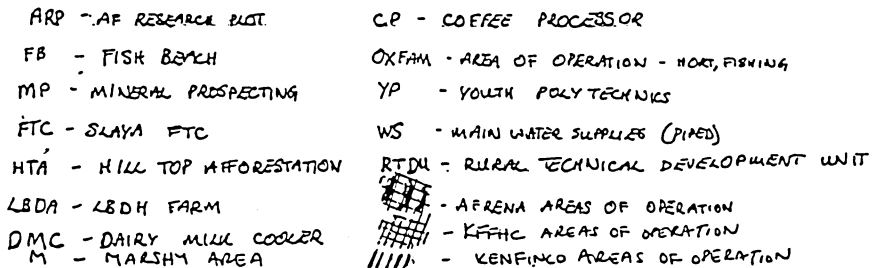 ARP - AF RESEARCH PLOT
FB - FISH BEACH
MP - MINERAL PROSPECTING
FTC - SIAYA FTC
HTA - HILL TOP AFFORESTATION
LBDA - LBDA FARM
DMC - DAIRY MILK COOLER
M - MARSHY AREA
CP - COFFEE PROCESSOR
OXFAM - AREA OF OPERATION - HORT, FISHING
YP - YOUTH POLYTECHNICS
WS - MAIN WATER SUPPLIES (PIPED)
RTDU - RURAL TECHNICAL DEVELOPMENT UNIT
- AFRENA AREAS OF OPERATION
- KEFHC AREAS OF OPERATION
- KENFINCO AREAS OF OPERATION